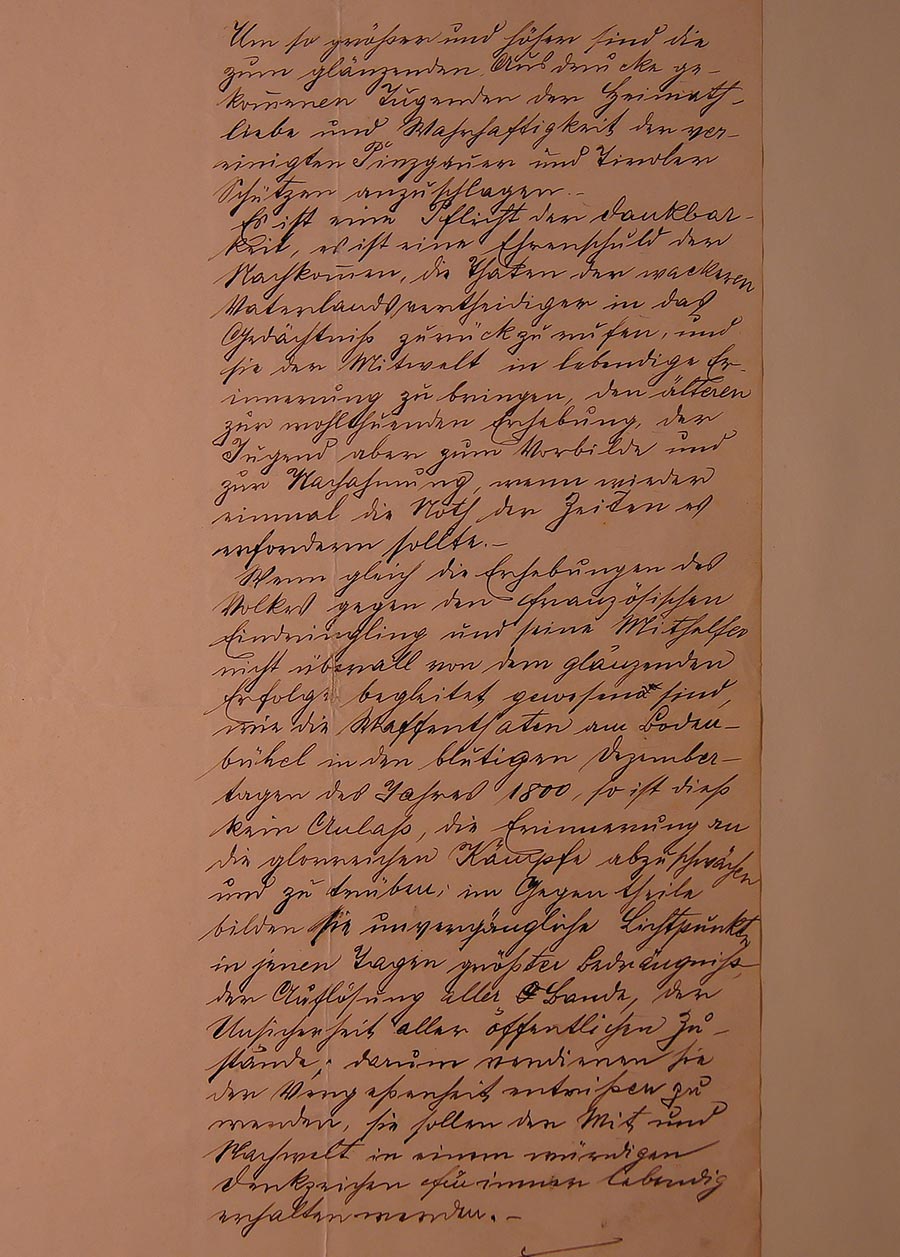 Um so größer und höher sind die
zum glänzenden Ausdrucke ge-
kom̄enen Tugenden der Heimath-
liebe und Wahrhaftigkeit der ver-
einigten Pinzgauer und Tiroler
Schützen anzuschlagen.-
Es ist eine Pflicht der Dankbar-
keit, es ist eine Ehrenschuld der
Nachkom̄en, die Thaten der wackeren
Vaterlandsvertheidiger in das
Gedächtniß zurückzurufen, und
sie der Mitwelt in lebendige Er-
innerung zu bringen, den älteren
zur wohlthuenden Erhebung, der
Jugend aber zum Vorbilde und
zur Nachahmung, wenn wieder
einmal die Noth der Zeiten es
erfordern sollte.-
Wenn gleich die Erhebungen des
Volkes gegen den französischen
Eindringling und seine Mithelfer
nicht überall von dem glänzenden
Erfolge begleitet gewesen sind,
wie die Waffenthaten am Boden-
bühel in den blutigen Dezember-
tagen des Jahres 1800, so ist dieß
kein Anlaß, die Erinnerung an
die glorreichen Kämpfe abzuschwächen
und zu trüben; im Gegentheile
bilden sie unvergängliche Lichtpunkte
in jenen Tagen größter Bedrängniß,
der Auflösung aller Bande, der
Unsicherheit aller öffentlichen Zu-
stände; darum verdienen sie
der Vergeßenheit entrißen zu
werden, sie sollen der Mit und
Nachwelt in einem würdigen
Denkzeichen für immer lebendig
erhalten werden.-